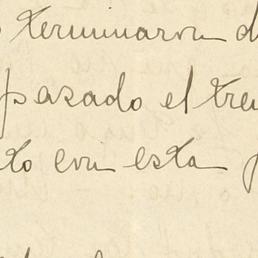 terminaron d
pasado el tre
to con esta p